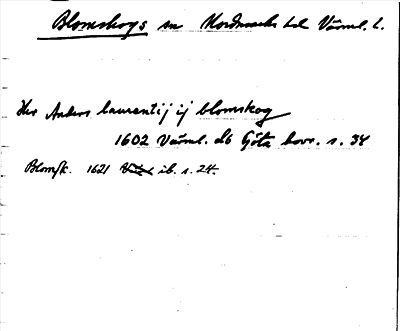 Blomskogs sn Nordmarks hd Värml. l.
Her Anders laurentij ij blomskog
1602 Värml. lb Göta hovr. s. 34
Blomsk. 1621 ib. s. 24.